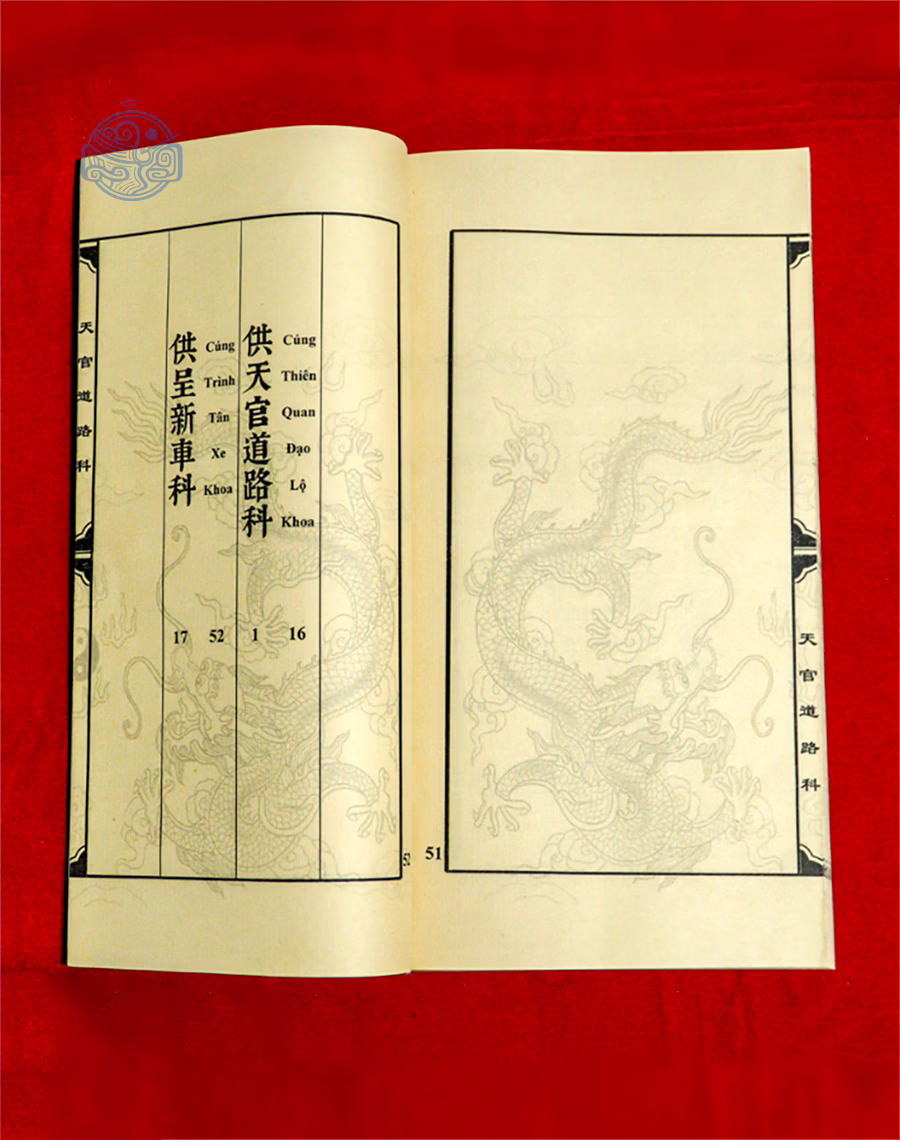 天官道路科
51
52
Cúng Thiên Quan Đạo Lộ Khoa
16
供天官道路科
1
Cúng Trình Tân Xe Khoa
52
供呈新車科
17
天官道路科